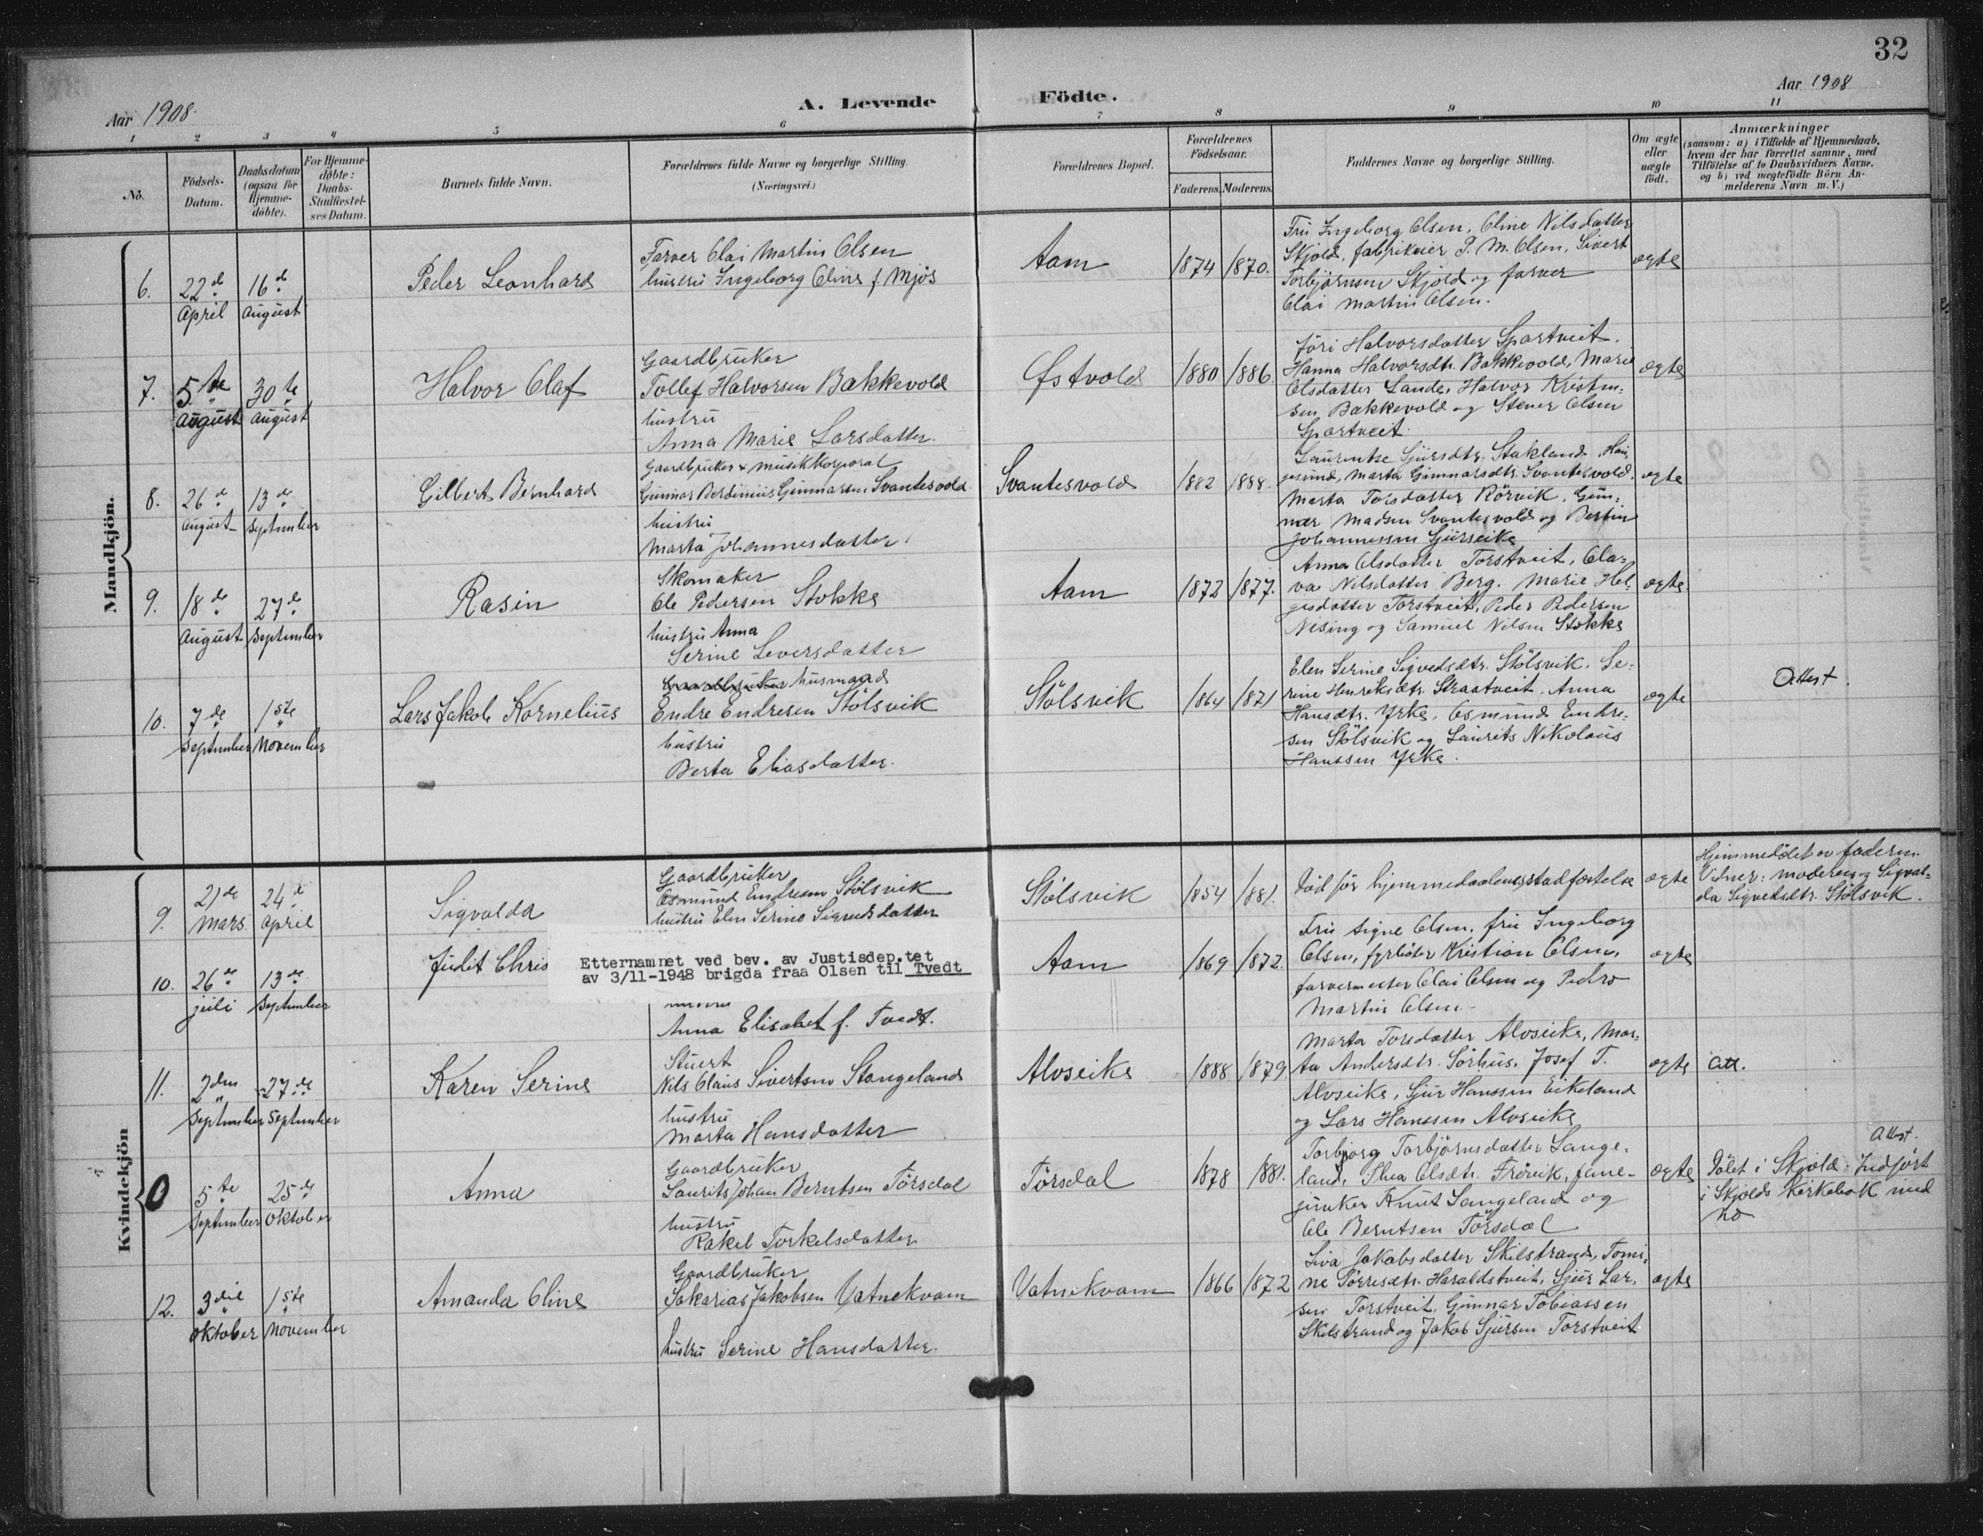 32
Aar 1908.
A. Levende Födte.
Aar 1908
1 2 3 4 5 6 7 8 9 10 11
No.
Födsels-
Datum.
Daabsdatum
(ogsaa for
Hjemme-
döbte).
For Hjemme-
döbte:
Daabs-
Stadfæstel-
ses Datum.
Barnets fulde Navn.
Forældrenes fulde Navne og borgerlige Stilling.
(Næringsvei.)
Forældrenes Bopæl.
Forældrenes
Födselsaar.
Faderens. Moderens.
Faddernes Navne og borgerlige Stilling.
Om ægte
eller
uægte
födt.
Anmærkninger
(saasom: a) i Tilfælde af Hjemmedaab,
hvem der har forrettet samme, med
Tilföielse af to Daabsvidners Navne,
og b) ved uægtefödte Börn An-
melderens Navn m. V.)
Mandkjön.
6.
22de
April
16de
August
Peder Leonhard
Farver Olai Martin Olsen
hustru Ingeborg Oline f. Mjøs
Aam
1874 1870.
Fru Ingeborg Olsen, Oline Nilsdatter
Skjold, fabrikeier P. M. Olsen, Sivert
Torbjørnsen Skjold og farver
Olai Martin Olsen.
ægte
7.
5te
August
30te
August
Halvor Olaf
Gaardbruker
Tollef Halvorsen Bakkevold
hustru
Anna Marie Larsdatter.
Østvold
1880 1886.
Jöri Halvorsdatter Spartveit.
Hanna Halvorsdtr. Bakkevold, Marie
Olsdatter Lande, Halvor Kristen-
sen Bakkevold og Stener Olsen
Spartveit.
ægte
8.
26de
August
13de
September
Gilbert Bernhard
Gaardbruker & musikkorporal
Gunnar Berdinius Gunnarsen Svantesvold
hustru
Marta Johannesdatter.
Svantesvold
1882 1888.
Laurentse Sjursdtr. Stakland, Hau-
gesund, Marta Gunnarsdtr. Svantesvold,
Marta Torsdatter Rörvik, Gun-
nar Madsen Svantesvold og Bertin
Johannessen Gjerseike
ægte
9.
18de
August
27de
September
Rasin
Skomaker
Ole Pedersen Stokke
hustru Anna
Serine Seversdatter
Aam
1872 1877.
Anna Olsdatter Torstveit, Ola-
va Nilsdatter Berg. Marie Hel-
gesdatter Torstveit, Peder Pedersen
Nising og Samuel Nilsen Stokke
ægte.
10.
7de
September
1ste
November
Lars Jakob Kornelius
Gaardbruker husmand
Endre Endresen Stölsvik
hustru
Berta Eliasdatter.
Stölsvik
1864 1871
Elen Serine Sigvedsdtr. Stölsvik. Se-
rine Henriksdtr. Straatveit, Anna
Hansdtr. Yrke, Osmund Endre-
sen Stölsvik og Laurits Nikolaus
Hanssen Yrke.
ægte
Attest.
Kvindekjön
9.
21de
Mars
24de
April
Sigvalda
Gaardbruker
Osmund Endresen Stölsvik
hustru Elen Serine Sigvedsdatter
Stölsvik
1854 1881.
Död för hjemmedaabens stadfæstelse
ægte
Hjemmedöbt av faderen.
Vidner: moderen og Sigval-
da Sigvedsdtr. Stölsvik.
10.
26de
juli
13de
September
Judit Chris
Etternamnet ved bev. av Justisdep.tet
av 3/11-1948 brigda fraa Olsen til Tvedt
hustru
Anna Elisabet f. Tvedt.
Aam
1869 1872.
Fru Signe Olsen, fru Ingeborg
Olsen, fyrböter Kristian Olsen,
farvermester Olai Olsen og Pedro
Martin Olsen.
ægte
11.
2den
September
27de
September
Karen Serine
Stuert
Nils Claus Sivertsen Stangeland
hustru
Marta Hansdatter
Alvseike
1888 1879.
Marta Torsdatter Alvseike, Mar-
ta Andersdtr. Sörhus, Josef T.
Alvseike, Sjur Hanssen Eikeland
og Lars Hanssen Alvseike
ægte
Att.
0
5te
September
25de
Oktober
Anna
Gaardbruker
Laurits Johan Berntsen Törsdal
hustru
Rakel Torkelsdatter
Törsdal
1878 1881.
Torbjorg Torbjörnsdatter Lange-
land, Thea Olsdtr. Frövik, fane-
junker Knut Langeland og
Ole Berntsen Törsdal
ægte
Attest.
Döbt i Skjold. Indfört
i Skjolds kirkebok med
No
12.
3die
Oktober
1ste
November
Amanda Oline
Gaardbruker
Sakarias Jakobsen Vatnekvam
hustru Serine Hansdatter.
Vatnekvam
1866 1872
Siva Jakobsdatter Skilstrand, Tomi-
ne Törresdtr. Haraldstveit, Sjur Lar-
sen Torstveit. Gunnar Tobiassen
Skilstrand og Jakob Sjursen Torstveit
ægte